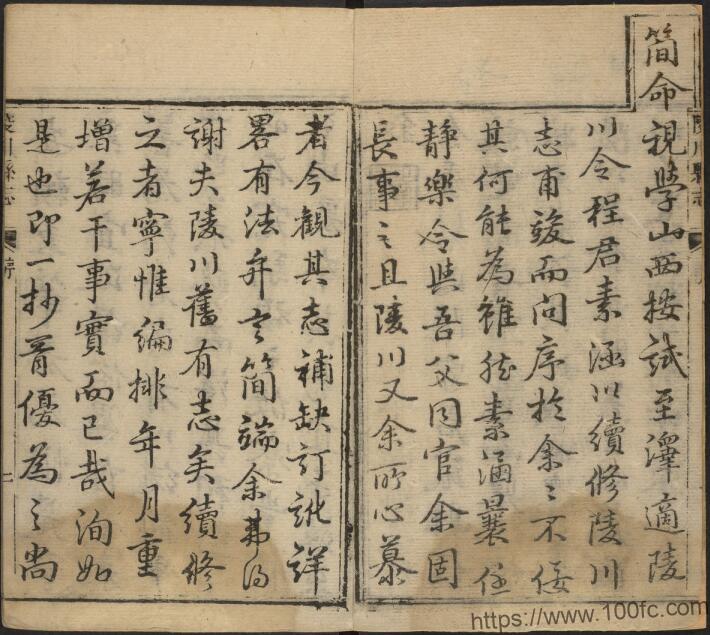 簡命視學山西按試至澤適陵
川令程君素涵以續修陵川
志甫竣而問序於余〻不佞
其何能為雖然素涵曩任
靜樂令與吾父同官余固
長事之且陵川又余所心慕
者今觀其志補缺訂訛詳
畧有法弁言簡端余弗得
謝夫陵川舊有志矣續修
之者寧惟編排年月重
增若干事實而已哉洵如
是也即一抄胥優為之尚
陵川縣志
序
陵川縣志
序
https://www.100fc.com